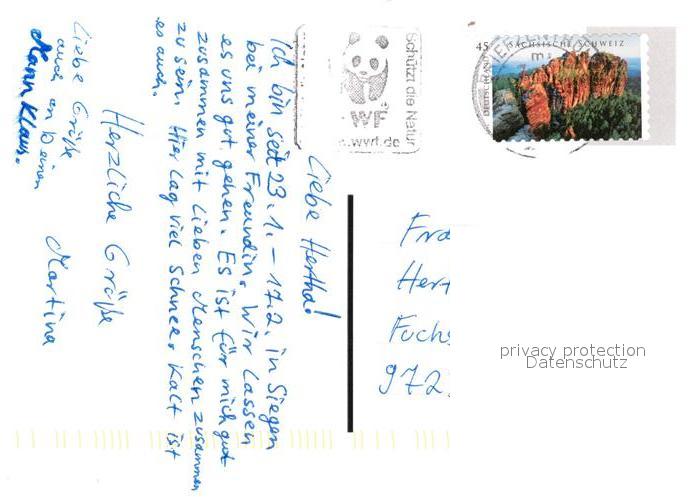 Liebe Hertha!
Ich bin seit 23.1. - 17.2. in Siegen
bei meiner Freundin. Wir lassen
es uns gut gehen. Es ist für mich gut
zusammen mit lieben Menschen zusammen
zu sein. Hier lag viel Schnee. Kalt ist
es auch.
Herzliche Grüße
Martina
Liebe Grüße
auch an Deinen
Mann Klaus.
Schützt die Natur
WWF
.wwf.de
45
SÄCHSISCHE SCHWEIZ
DEUTSCHLAND
Fra
Her
Fuchs
972
privacy protection
Datenschutz